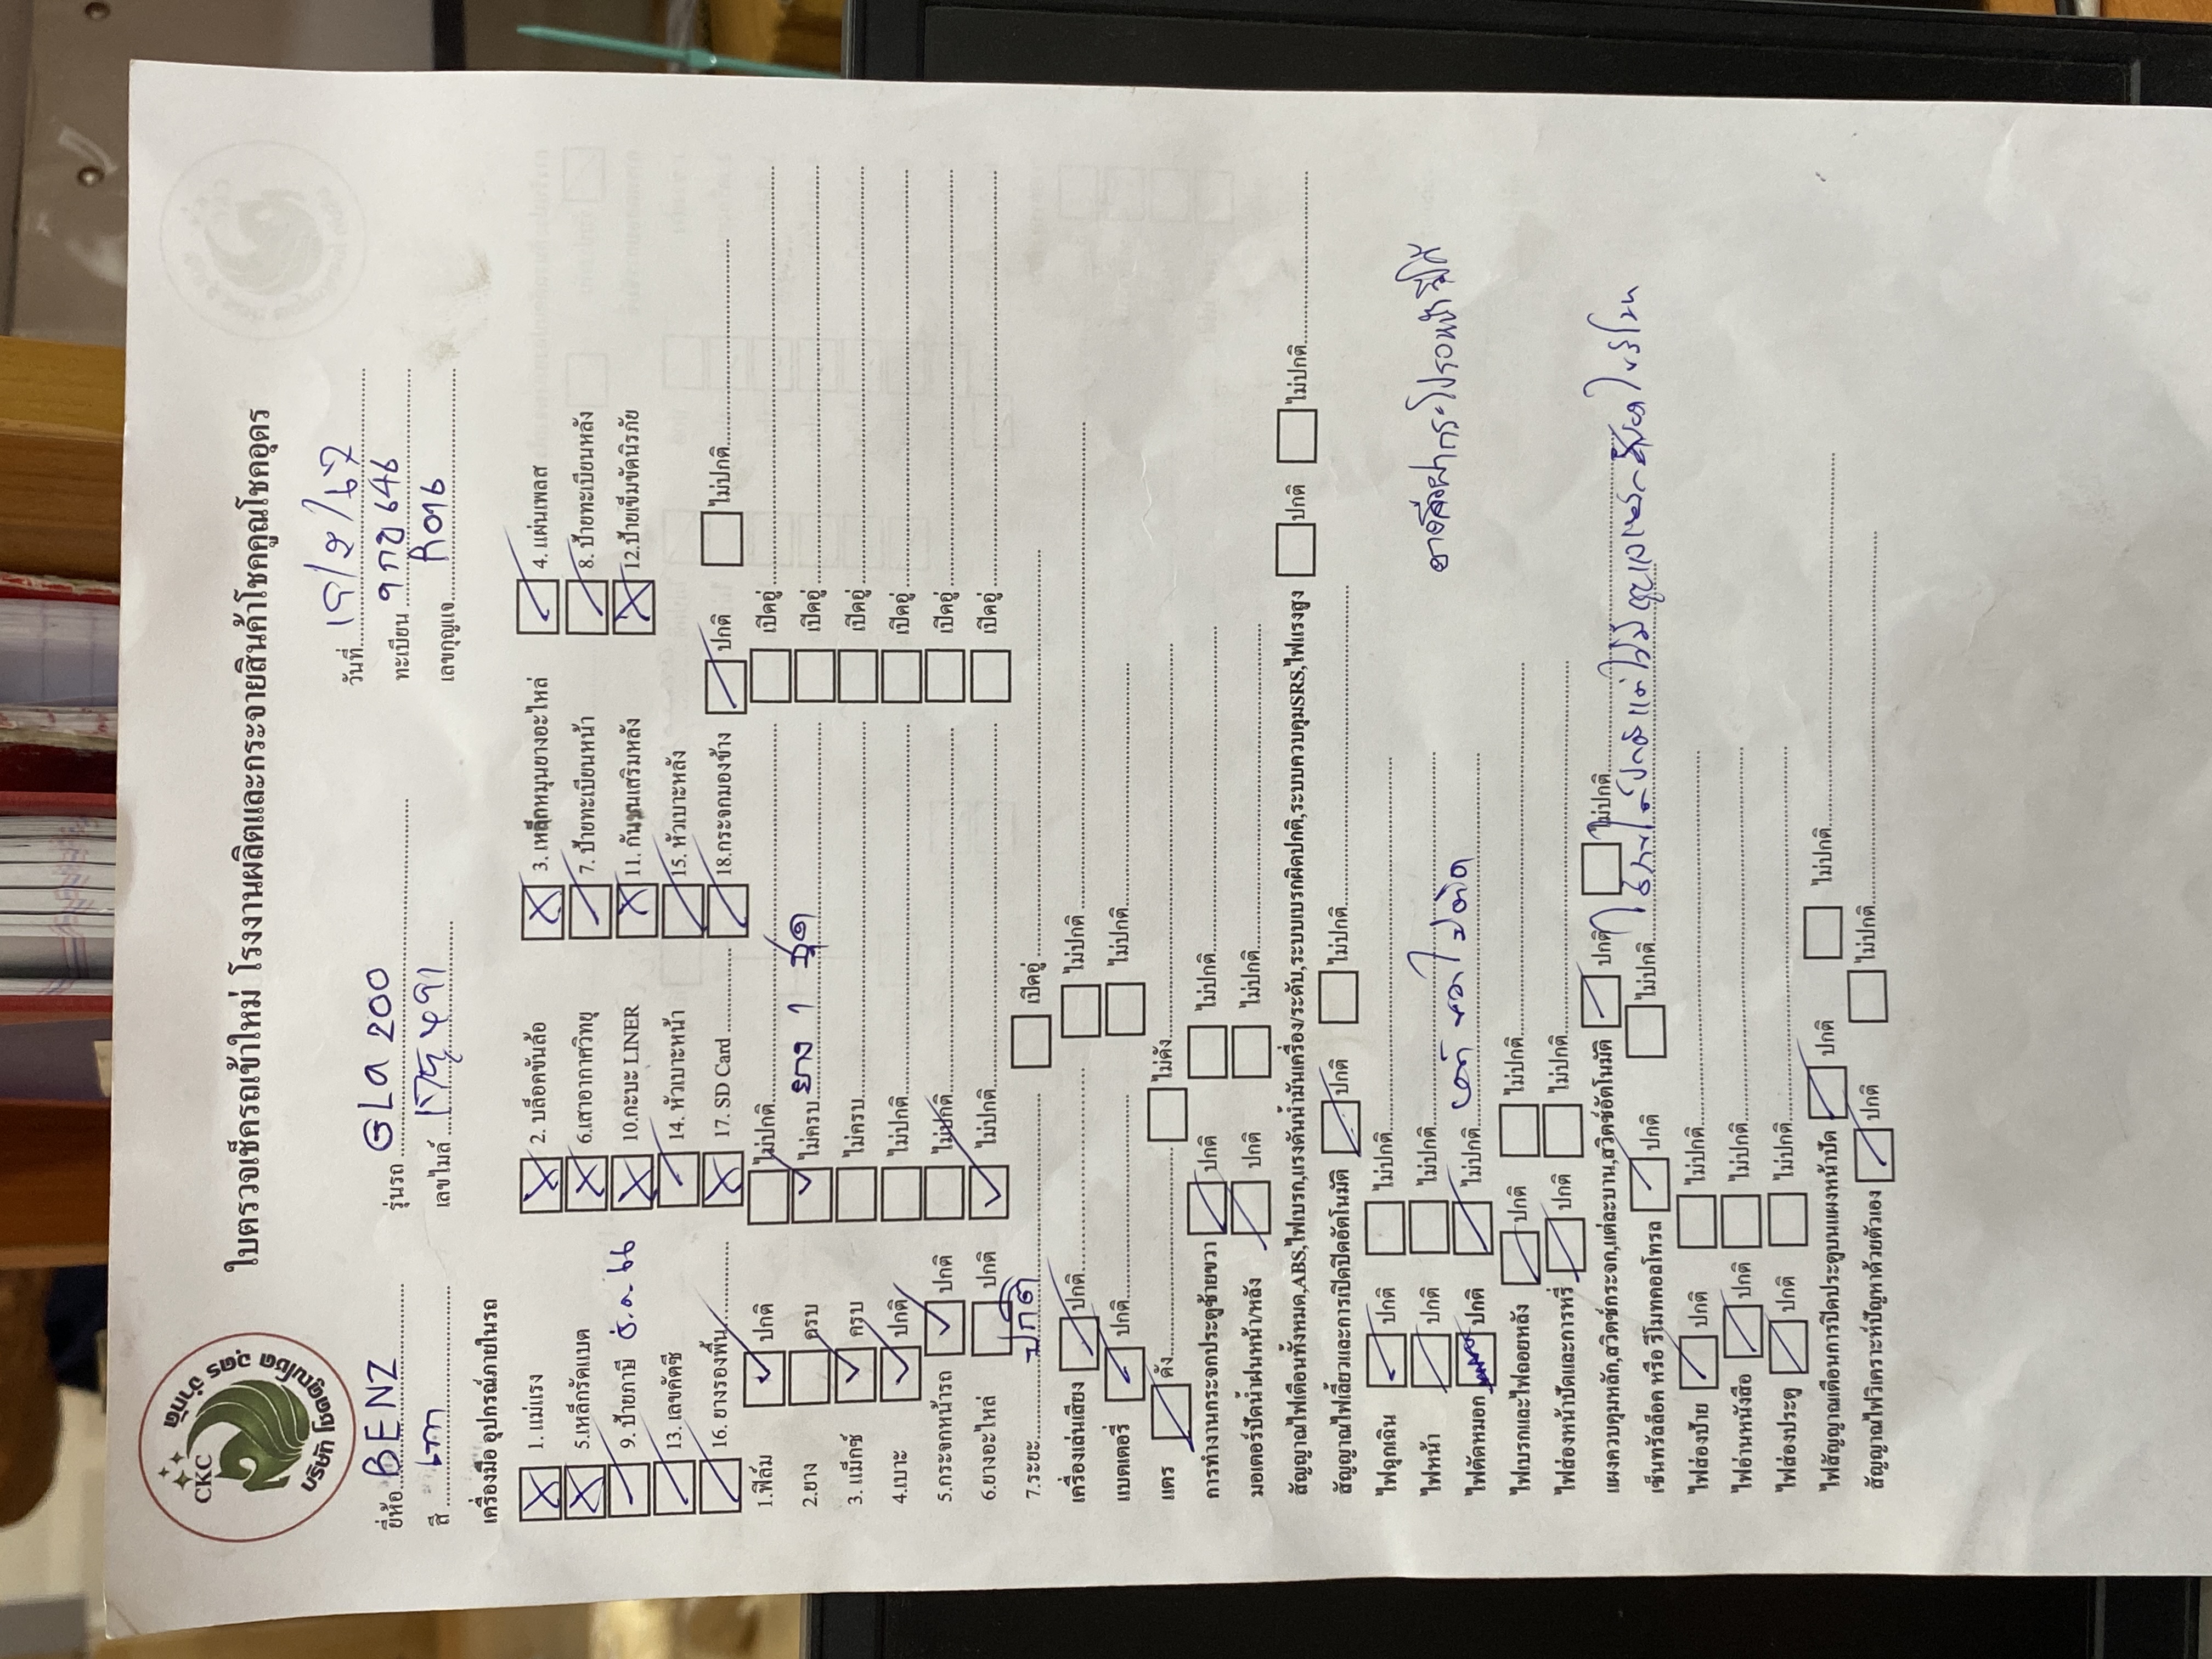 CKC
บริษัท โชคคูณโชคอุดร จำกัด
ใบตรวจเช็ครถเข้าใหม่ โรงงานผลิตและกระจายสินค้าโชคคูณโชคอุดร
วันที่
ยี่ห้อ BENZ รุ่นรถ GLA 200 ทะเบียน 9กข 646
สี เทา เลขไมล์ เลขกุญแจ
เครื่องมือ อุปกรณ์ภายในรถ
1. แม่แรง 2. บล็อคขันล้อ 3. เหล็กหมุนยางอะไหล่ 4. แผ่นเพลส
5.เหล็กรัดแบต 6.เสาอากาศวิทยุ 7. ป้ายทะเบียนหน้า 8. ป้ายทะเบียนหลัง
9. ป้ายภาษี ธ.ค 66 10.กะบะ LINER 11. กันชนเสริมหลัง 12.ป้ายเข็มขัดนิรภัย
13. เลขคัตซี 14. หัวเบาะหน้า 15. หัวเบาะหลัง
16. ยางรองพื้น 17. SD Card 18.กระจกมองข้าง ปกติ ไม่ปกติ
1.ฟิล์ม ปกติ ไม่ปกติ เปิดอยู่
2.ยาง ครบ ไม่ครบ ยาง 1 ชุด เปิดอยู่
3. แม็กซ์ ครบ ไม่ครบ เปิดอยู่
4.เบาะ ปกติ ไม่ปกติ เปิดอยู่
5.กระจกหน้ารถ ปกติ ไม่ปกติ เปิดอยู่
6.ยางอะไหล่ ปกติ ไม่ปกติ เปิดอยู่
7.ระยะ ปกติ เปิดอยู่
เครื่องเล่นเสียง ปกติ ไม่ปกติ
แบตเตอรี่ ปกติ ไม่ปกติ
แตร ดัง ไม่ดัง
การทำงานกระจกประตูซ้ายขวา ปกติ ไม่ปกติ
มอเตอร์ปัดน้ำฝนหน้า/หลัง ปกติ ไม่ปกติ
สัญญาณไฟเตือนทั้งหมด,ABS,ไฟเบรก,แรงดันน้ำมันเครื่อง/ระดับ,ระบบเบรกผิดปกติ,ระบบควบคุมSRS,ไฟแรงสูง ปกติ ไม่ปกติ
สัญญาณไฟเลี้ยวและการเปิดปิดอัตโนมัติ ปกติ ไม่ปกติ
ไฟฉุกเฉิน ปกติ ไม่ปกติ
ไฟหน้า ปกติ ไม่ปกติ
ไฟตัดหมอก ปกติ ไม่ปกติ
ไฟเบรกและไฟถอยหลัง ปกติ ไม่ปกติ
ไฟส่องหน้าปัดและการหรี่ ปกติ ไม่ปกติ
แผงควบคุมหลัก,สวิตช์กระจก,แต่ละบาน,สวิตช์อัตโนมัติ ปกติ ไม่ปกติ
เซ็นทรัลล็อค หรือ รีโมทคอลโทรล ปกติ ไม่ปกติ
ไฟส่องป้าย ปกติ ไม่ปกติ
ไฟอ่านหนังสือ ปกติ ไม่ปกติ
ไฟส่องประตู ปกติ ไม่ปกติ
ไฟสัญญาณเตือนการปิดประตูบนแผงหน้าปัด ปกติ ไม่ปกติ
สัญญาณไฟวิเคราะห์ปัญหาด้วยตัวเอง ปกติ ไม่ปกติ